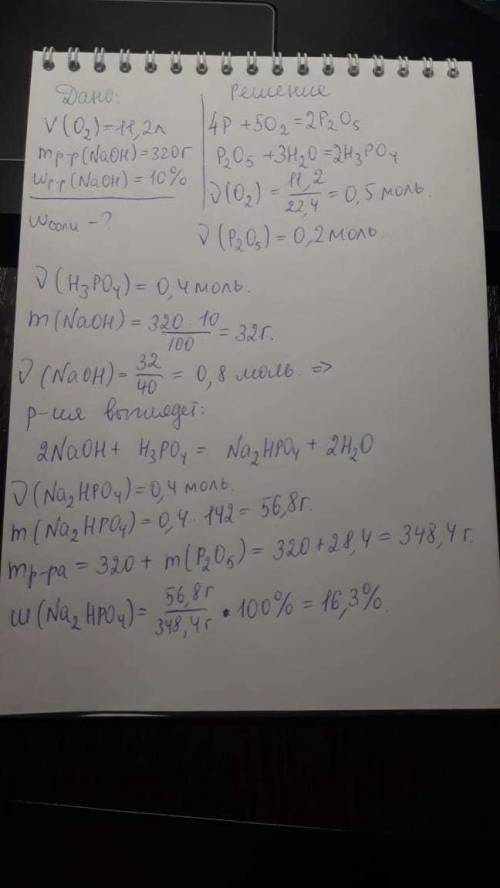 Дано:
V(O₂)=11,2л
mр-р(NaOH)=320г
Wр-р(NaOH)=10%
Wсоли-?
Решение
4P+5O₂=2P₂O₅
P₂O₅+3H₂O=2H₃PO₄
ν(O₂)=11,2/22,4=0,5 моль.
ν(P₂O₅)=0,2 моль.
ν(H₃PO₄)=0,4 моль.
m(NaOH)=320·10/100=32г.
ν(NaOH)=32/40=0,8 моль. =>
р-ция выглядет:
2NaOH+ H₃PO₄= Na₂HPO₄+2H₂O
ν(Na₂HPO₄)=0,4 моль.
m(Na₂HPO₄)=0,4·142=56,8г.
mр-ра=320+m(P₂O₅)=320+28,4=348,4г.
ω(Na₂HPO₄)=56,8г/348,4г·100%=16,3%.